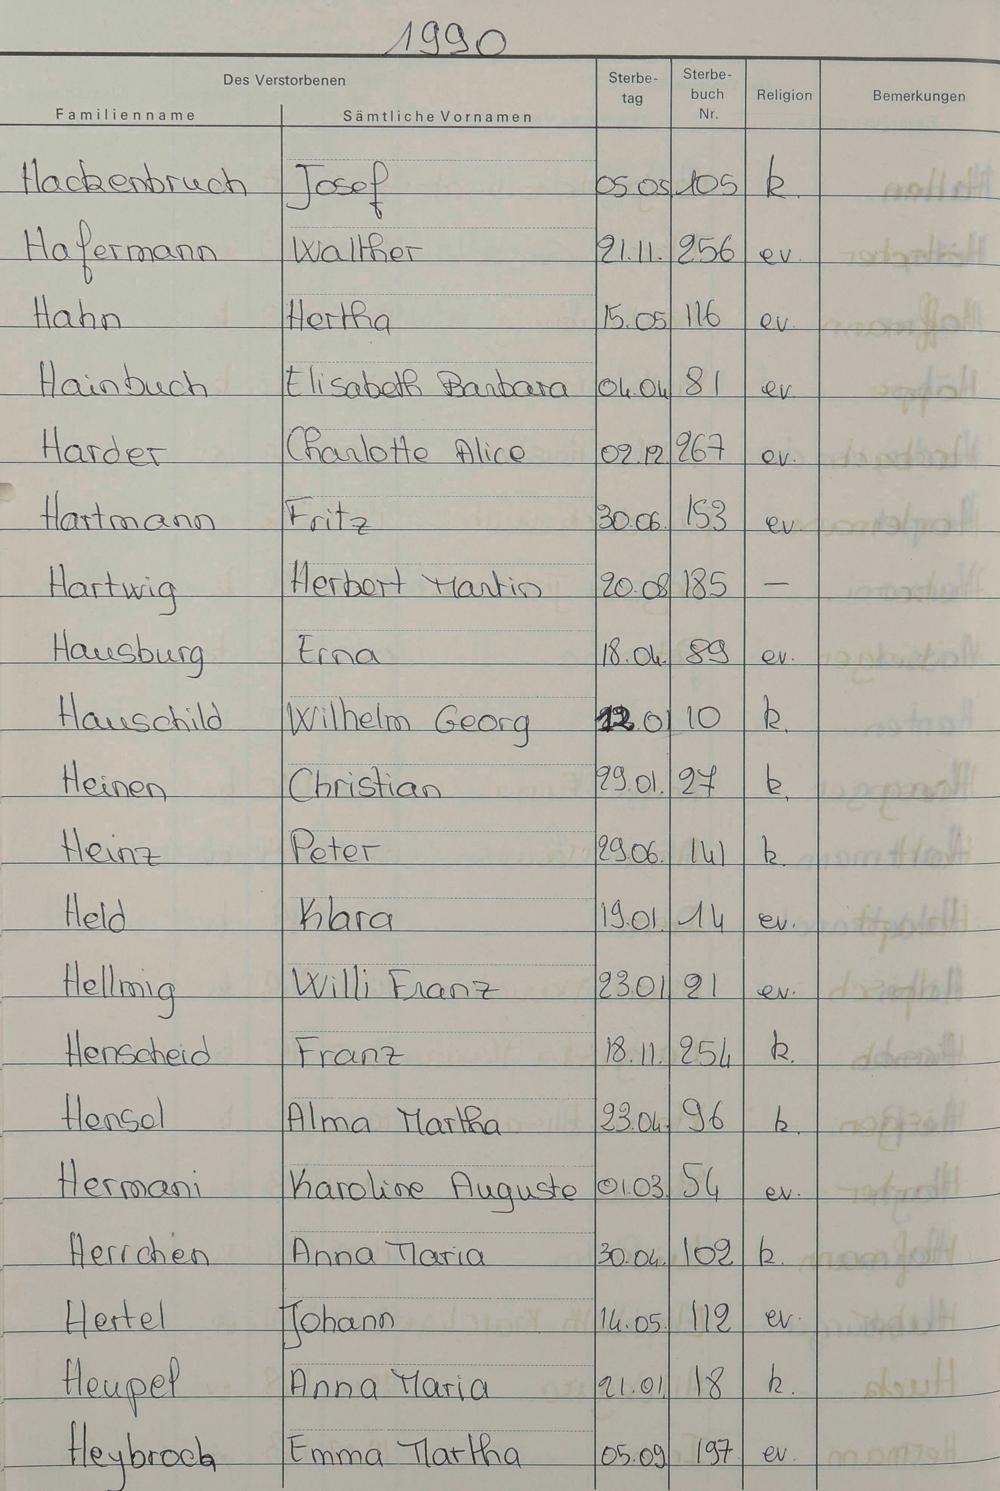 1990
Des Verstorbenen Sterbe- Sterbe-
Familienname Sämtliche Vornamen tag buch Nr. Religion Bemerkungen
Hackenbruch Josef 05.05. 105 k.
Hafermann Walther 21.11. 256 ev.
Hahn Hertha 15.05 116 ev.
Hainbuch Elisabeth Barbara 04.04 81 ev.
Harder Charlotte Alice 02.12 267 ev.
Hartmann Fritz 30.06. 153 ev.
Hartwig Herbert Martin 20.08 185 —
Hausburg Erna 18.04. 89 ev.
Hauschild Wilhelm Georg 12.01 10 k.
Heinen Christian 29.01. 27 k.
Heinz Peter 29.06. 141 k.
Held Klara 19.01. 14 ev.
Hellmig Willi Franz 23.01 21 ev.
Henscheid Franz 18.11. 254 k.
Hensel Alma Martha 23.04. 96 k.
Hermani Karoline Auguste 01.03. 54 ev.
Herrchen Anna Maria 30.04. 102 k.
Hertel Johann 14.05. 112 ev.
Heupel Anna Maria 21.01. 18 k.
Heybrock Emma Martha 05.09 197 ev.